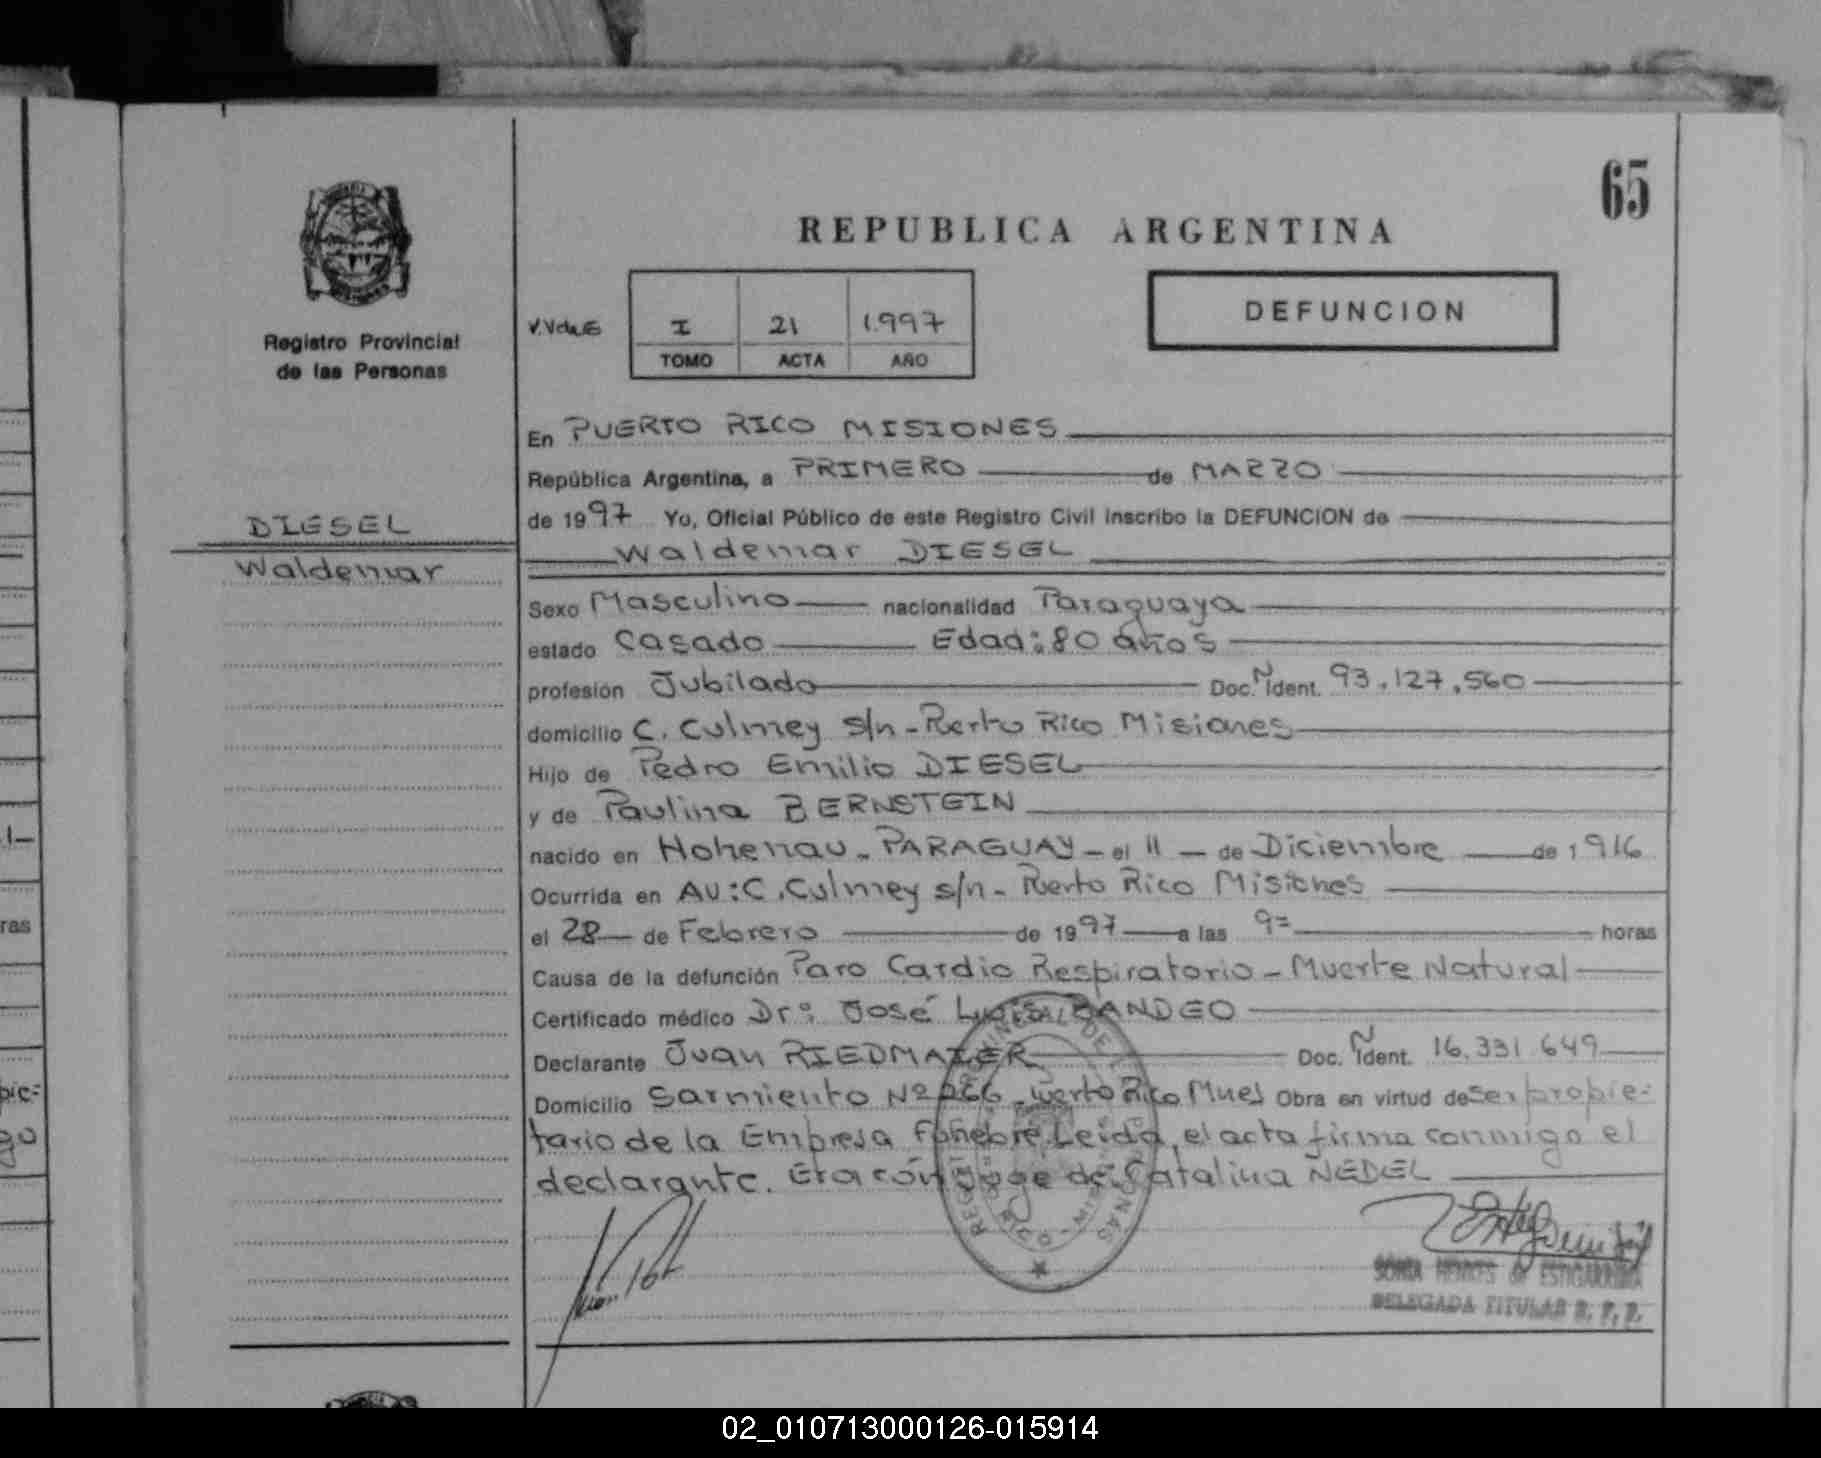 65
REPUBLICA ARGENTINA
Registro Provincial
de las Personas
I 21 1.997
TOMO ACTA AÑO
DEFUNCION
DIESEL
Waldemar
En PUERTO RICO MISIONES
República Argentina, a PRIMERO de MARZO
de 1997 Yo, Oficial Público de este Registro Civil inscribo la DEFUNCION de
Waldemar DIESEL
Sexo Masculino nacionalidad Paraguaya
estado Casado Edad: 80 años
profesión Jubilado Doc. Nº Ident. 93.127.560
domicilio C. Culmey s/n - Puerto Rico Misiones
Hijo de Pedro Emilio DIESEL
y de Paulina BERNSTEIN
nacido en Hohenau - PARAGUAY - el 11 - de Diciembre de 1916
Ocurrida en AV: C. Culmey s/n - Puerto Rico Misiones
el 28 de Febrero de 1997 a las 9= horas
Causa de la defunción Paro Cardio Respiratorio - Muerte Natural
Certificado médico Dr: José Luis BANDEO
Declarante Juan RIEDMAIER Doc. Nº Ident. 16.331.649
Domicilio Sarmiento Nº 266 - Puerto Rico Mnes Obra en virtud de Ser propie-
tario de la Empresa Fúnebre Leida, el acta firma conmigo el
declarante. Era cónyuge de: Catalina NEDEL
SONIA de ESTIGARRIBIA
DELEGADA TITULAR R. P. P.
02_010713000126-015914